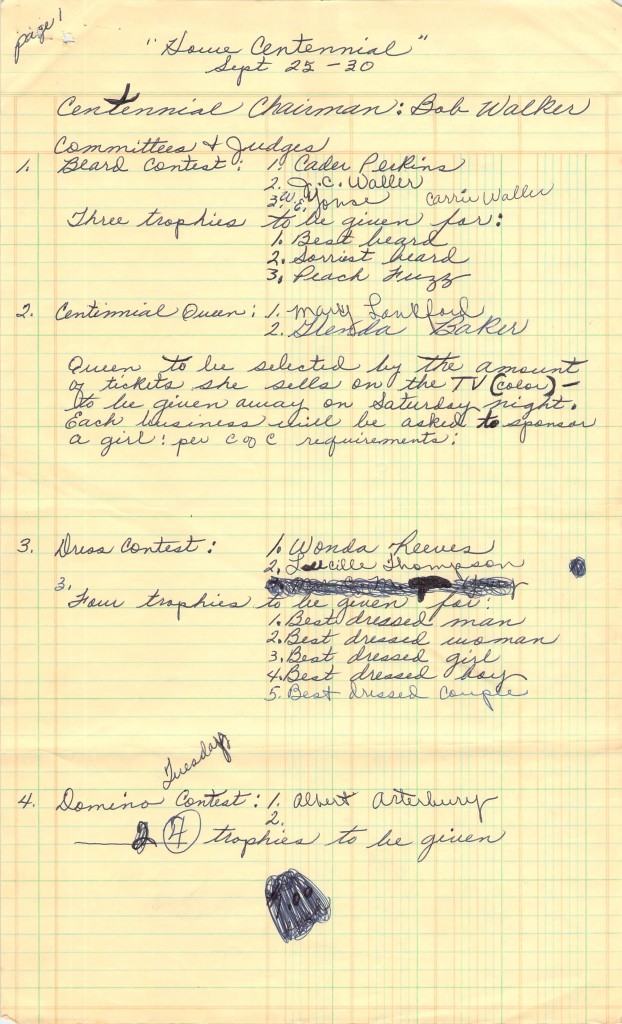 page 1
"Howe Centennial"
Sept 25-30
Centennial Chairman: Bob Walker
Committees & Judges
1. Beard Contest: 1. Cader Perkins
2. J.C. Waller
3. W.E. Yonse Carrie Waller
Three trophies to be given for:
1. Best beard
2. Sorriest beard
3. Peach Fuzz
2. Centinnial Queen: 1. Mary Lankford
2. Glenda Baker
Queen to be selected by the amount
of tickets she sells on the TV (color) -
to be given away on Saturday night.
Each business will be asked to sponsor
a girl: per C of C requirements:
3. Dress Contest: 1. Wonda Reeves
2. Lucille Thompson
3.
Four trophies to be given for:
1. Best dressed man
2. Best dressed woman
3. Best dressed girl
4. Best dressed boy
5. Best dressed couple
Tuesday
4. Domino Contest: 1. Albert Arterbury
2.
4 trophies to be given